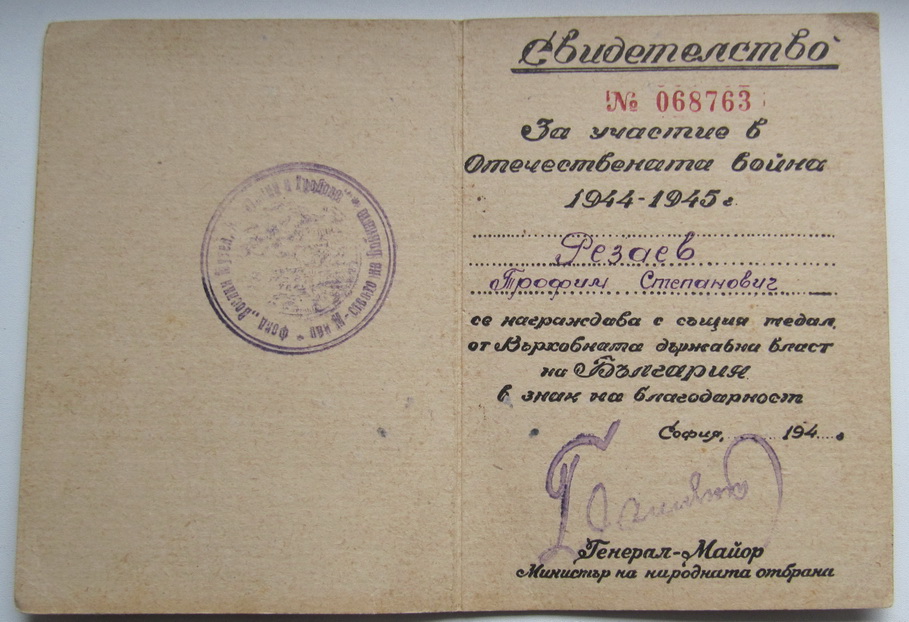 Свидетелство
№ 068763
За участие в
Отечествената война
1944-1945 г.
Резаев
Трофим Степанович
се награждава с същия медал,
от Върховната държавна власт
на България
в знак на благодарност
София, 194
Генерал-Майор
Министър на народната отбрана